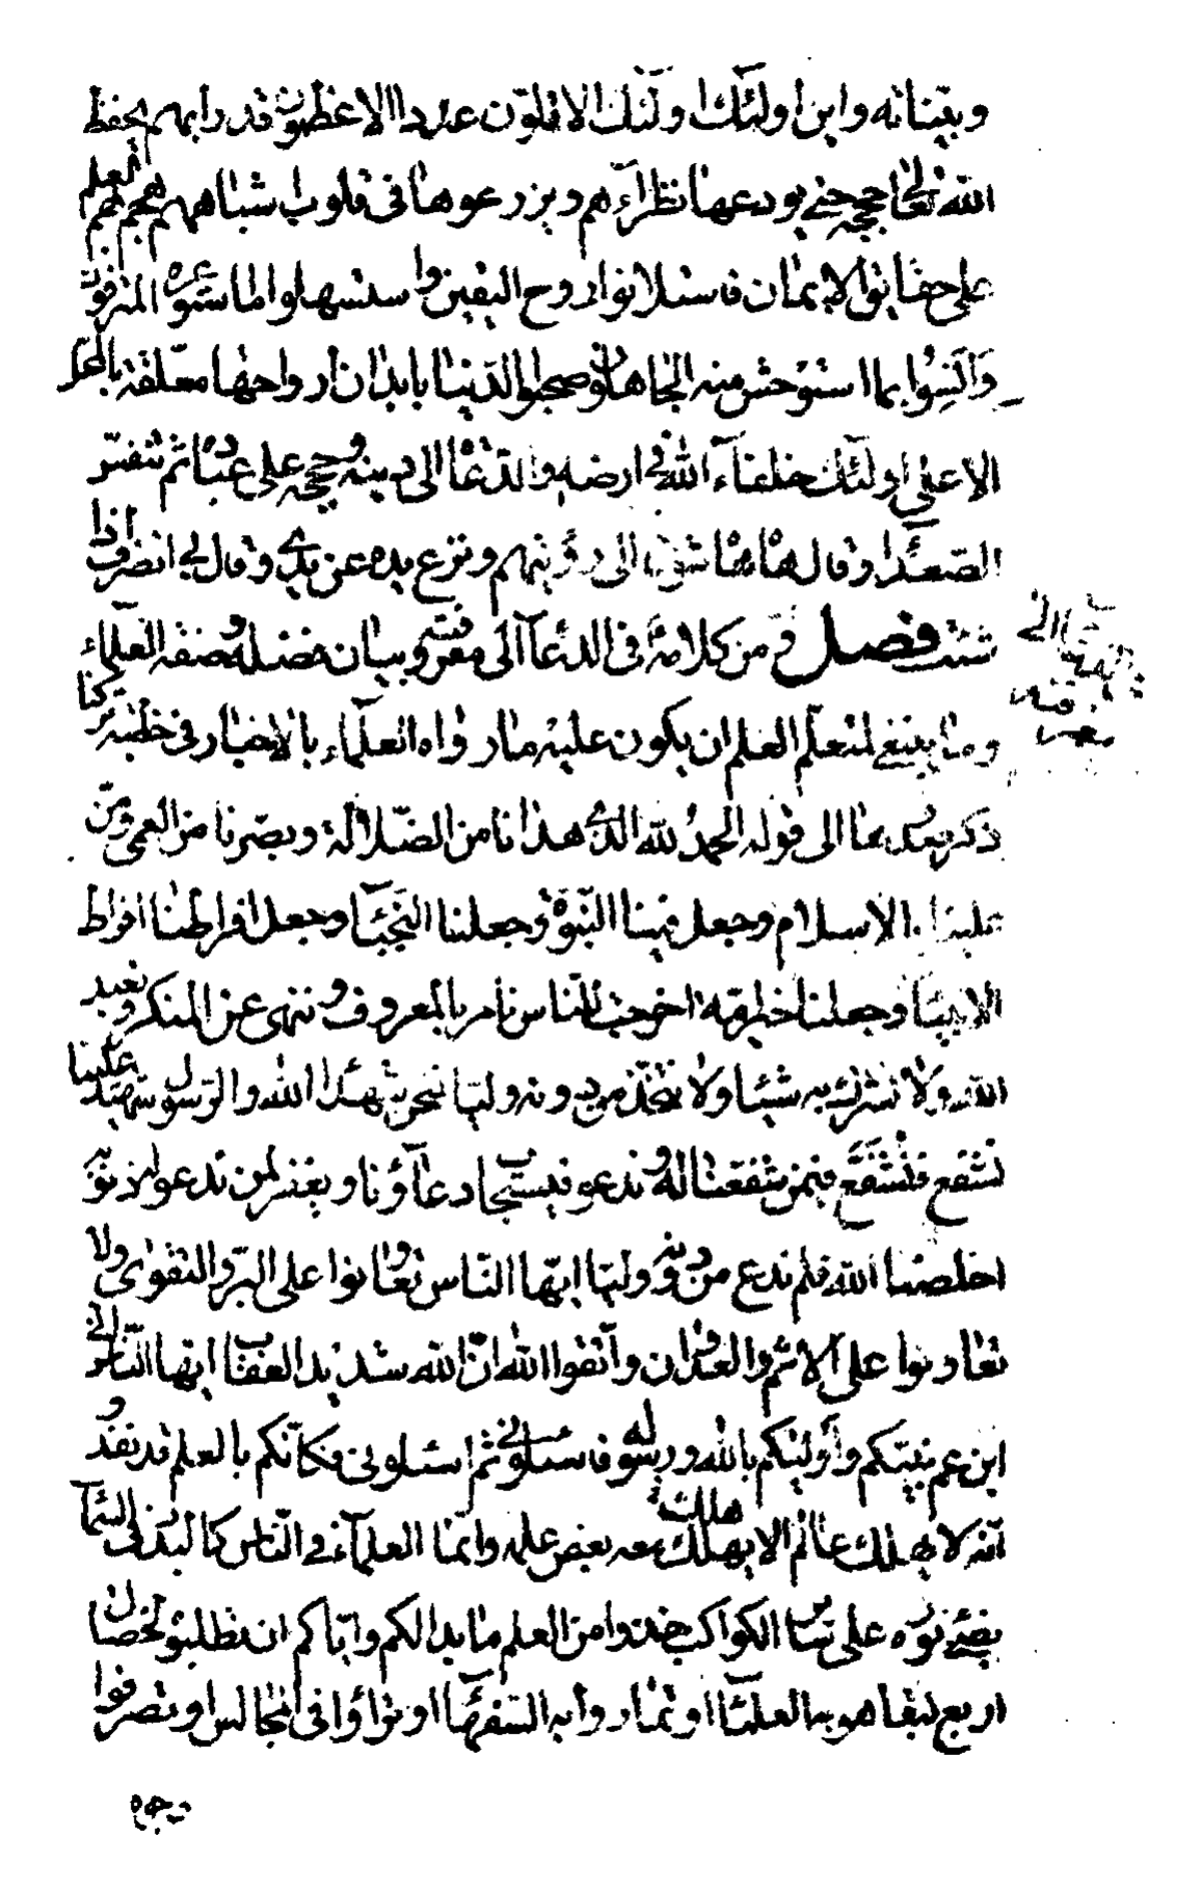 وبيناته واين اولئك اولئك الاقلون عددا الاعظمون قدرا بهم يحفظ
الله تعالى حججه حتى يودعها نظرآءهم ويزرعوها في قلوب اشباههم هجم بهم العلم
على حقايق الايمان فاستلانوا روح اليقين واستسهلوا ما استوعره المترفون
وَآنِسُوا بما استوحش منه الجاهلون وصحبوا الدنيا بابدان ارواحها معلقة بالمحل
الاعلى اولئك خلفآء الله في ارضه والدعاة الى دينه وحججه على عباده ثم تنفس
الصعدآء وقال هاه هاه شوقا الى رؤيتهم ونزع يده عن يدي وقال لي انصرف اذا
شئت فصل ومن كلامه في الدعآء الى معرفته وبيان فضله وصفة العلمآء
وما ينبغي لمتعلم العلم ان يكون عليه ما رواه العلمآء بالاخبار في خطبة تركنا
ذكر صدرها الى قوله الحمد لله الذي هدانا من الضلالة وبصرنا من العمى ومن
علينا بالاسلام وجعل فينا النبوة وجعلنا النجبآء وجعل افراطنا افراط
الانبيآء وجعلنا خير امة اخرجت للناس نامر بالمعروف وننهى عن المنكر ونعبد
الله ولا نشرك به شيئا ولا نتخذ من دونه وليا نحن شهدآء الله والرسول شهيد علينا
نشفع فنُشَفَّع فيمن شفعنا له وندعو فيستجاب دعآؤنا ويغفر لمن ندعو له ذنوبه
اخلصنا لله فلم ندع من دونه وليا ايها الناس تعاونوا على البر والتقوى ولا
تعاونوا على الاثم والعدوان واتقوا الله ان الله شديد العقاب ايها الناس اني
ابن عم نبيكم وأوليكم بالله ورسوله فاسئلوني ثم اسئلوني فكانكم بالعلم قد نفد و
انه لا يهلك عالم الا يهلك هلك معه بعض علمه وانما العلمآء في الناس كالبدر في السمآء
يضئ نوره على ساير الكواكب خذوا من العلم ما بدا لكم واياكم ان تطلبوه لخصال
اربع لتباهوا به العلمآء او تماروا به السفهآء او تراؤا في المجالس او تصرفوا
وجوه